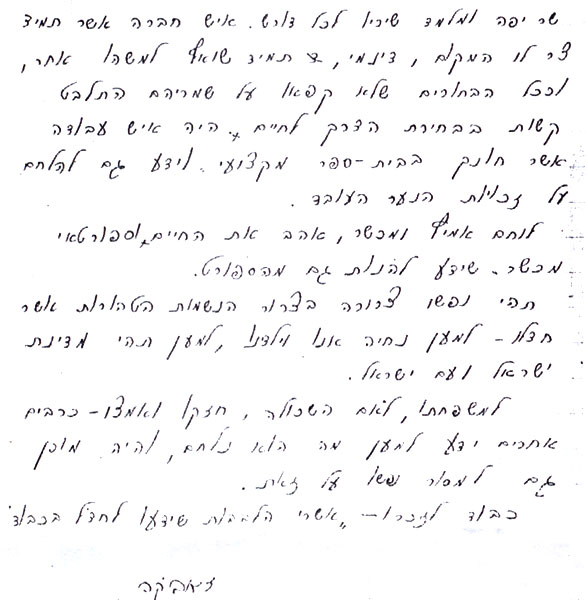 שר יפה ומלמד שירים לכל דורש. איש חברה אשר תמיד
צר לו המקום, דינמי, תמיד שואף למשהו אחר,
וככל הבחורים שלא קפאו על שמריהם התלבט
קשות בבחירת הדרך לחיים. היה איש עבודה
אשר חונך בבית-ספר מקצועי. וידע גם להלחם
על זכויות הנוער העובד.
לוחם אמיץ ומוכשר, אהב את החיים, וספורטאי
מוכשר. שידע להנות גם מהספורט.
תהי נפשו צרורה בצרור הנשמות הטהורות אשר
חדלו - למען נחיה אנו וילדנו, למען תהי מדינת
ישראל ועם ישראל.
למשפחתו, לאם השכולה, חזקו ואמצו - כרבים
אחרים ידע למען מה הוא נלחם, והיה מוכן
גם למסור נפשו על זאת.
כבוד לזכרו - "אשרי הלבבות שידעו לחדול בכבוד"